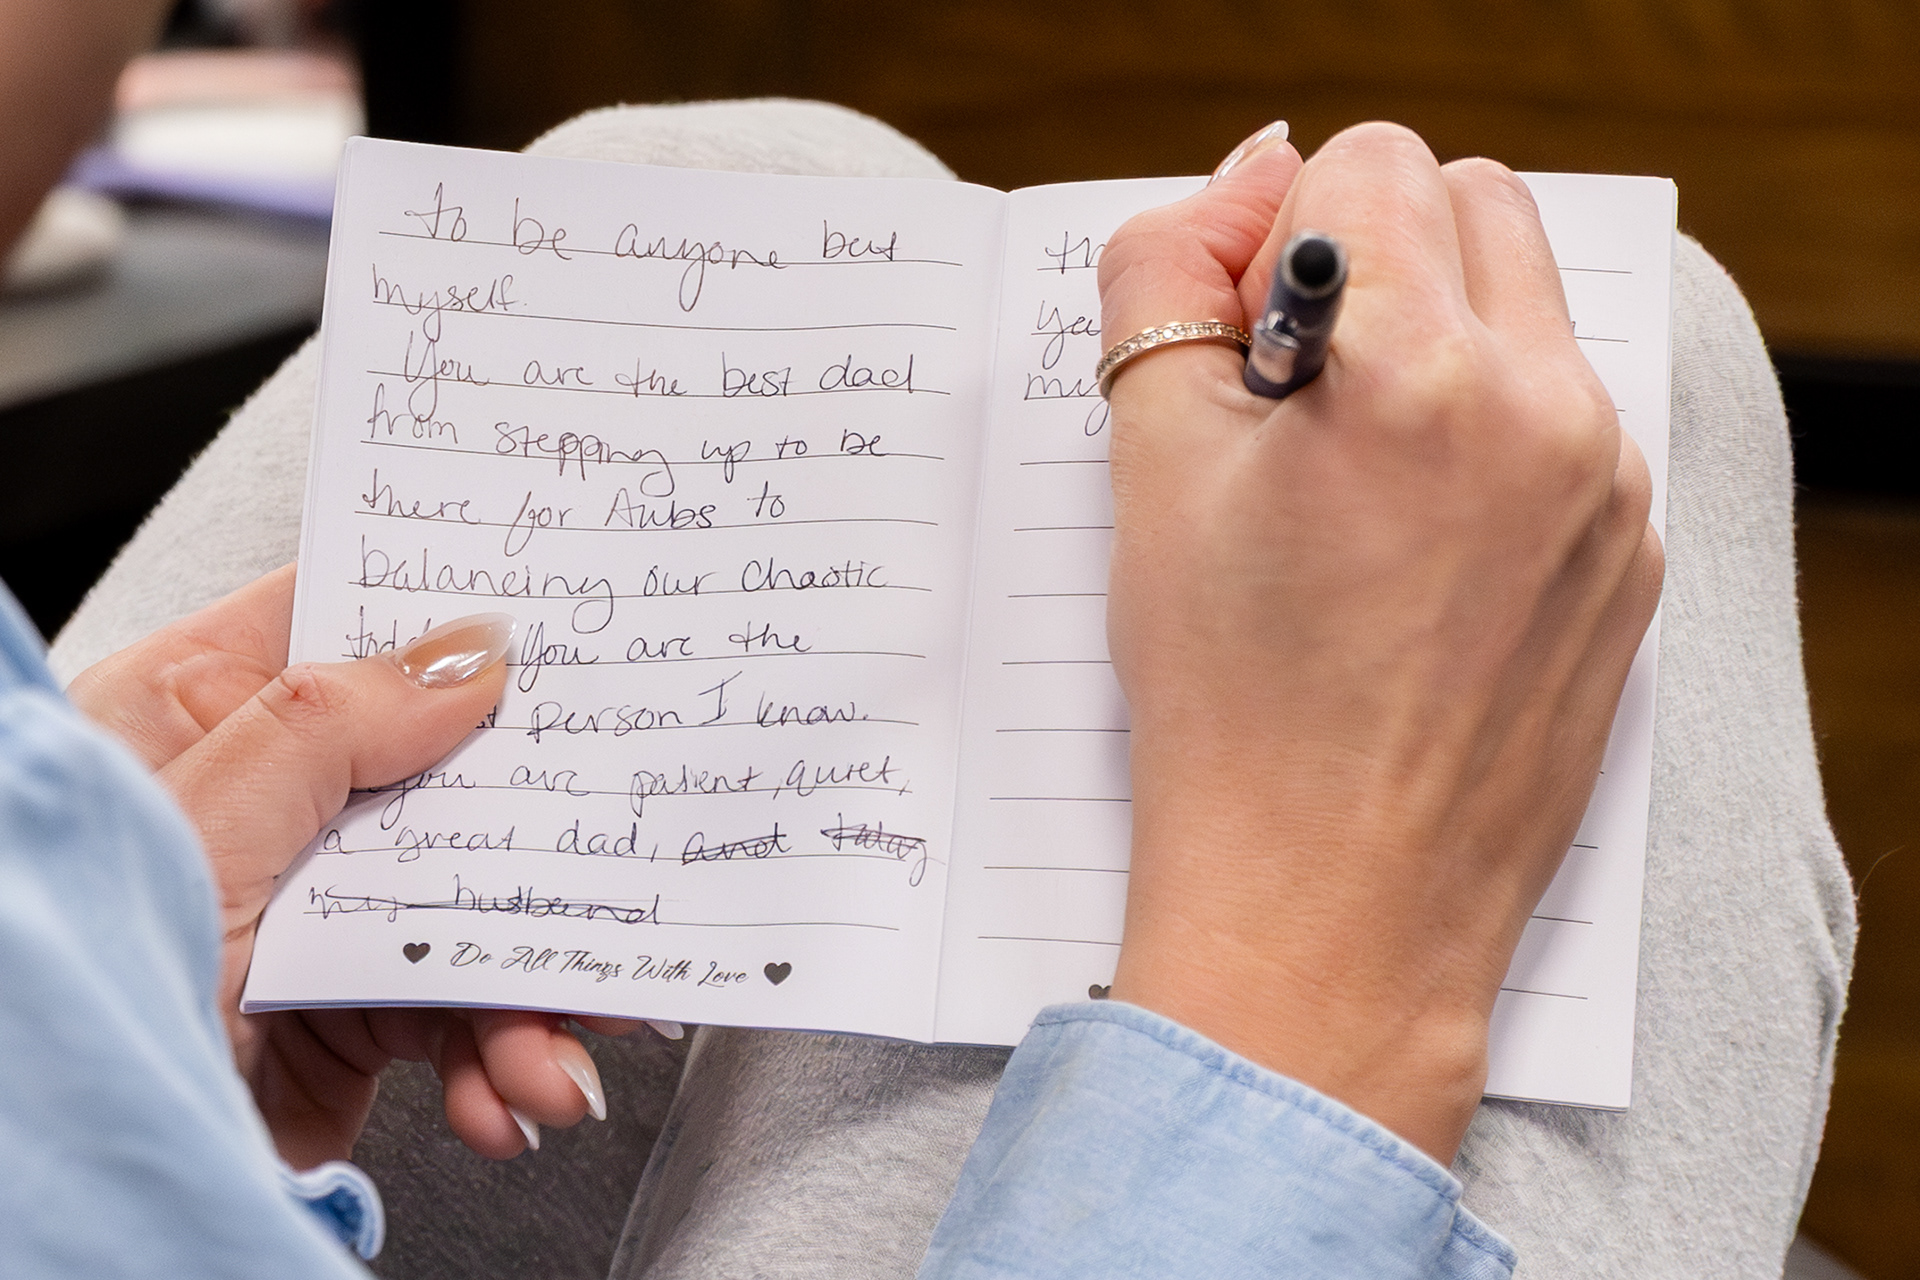 to be anyone but
myself.
You are the best dad
from stepping up to be
there for Aubs to
balancing our chaotic
You are the
person I know.
you are patient, quiet,
a great dad, and today
my husband
Do All Things With Love